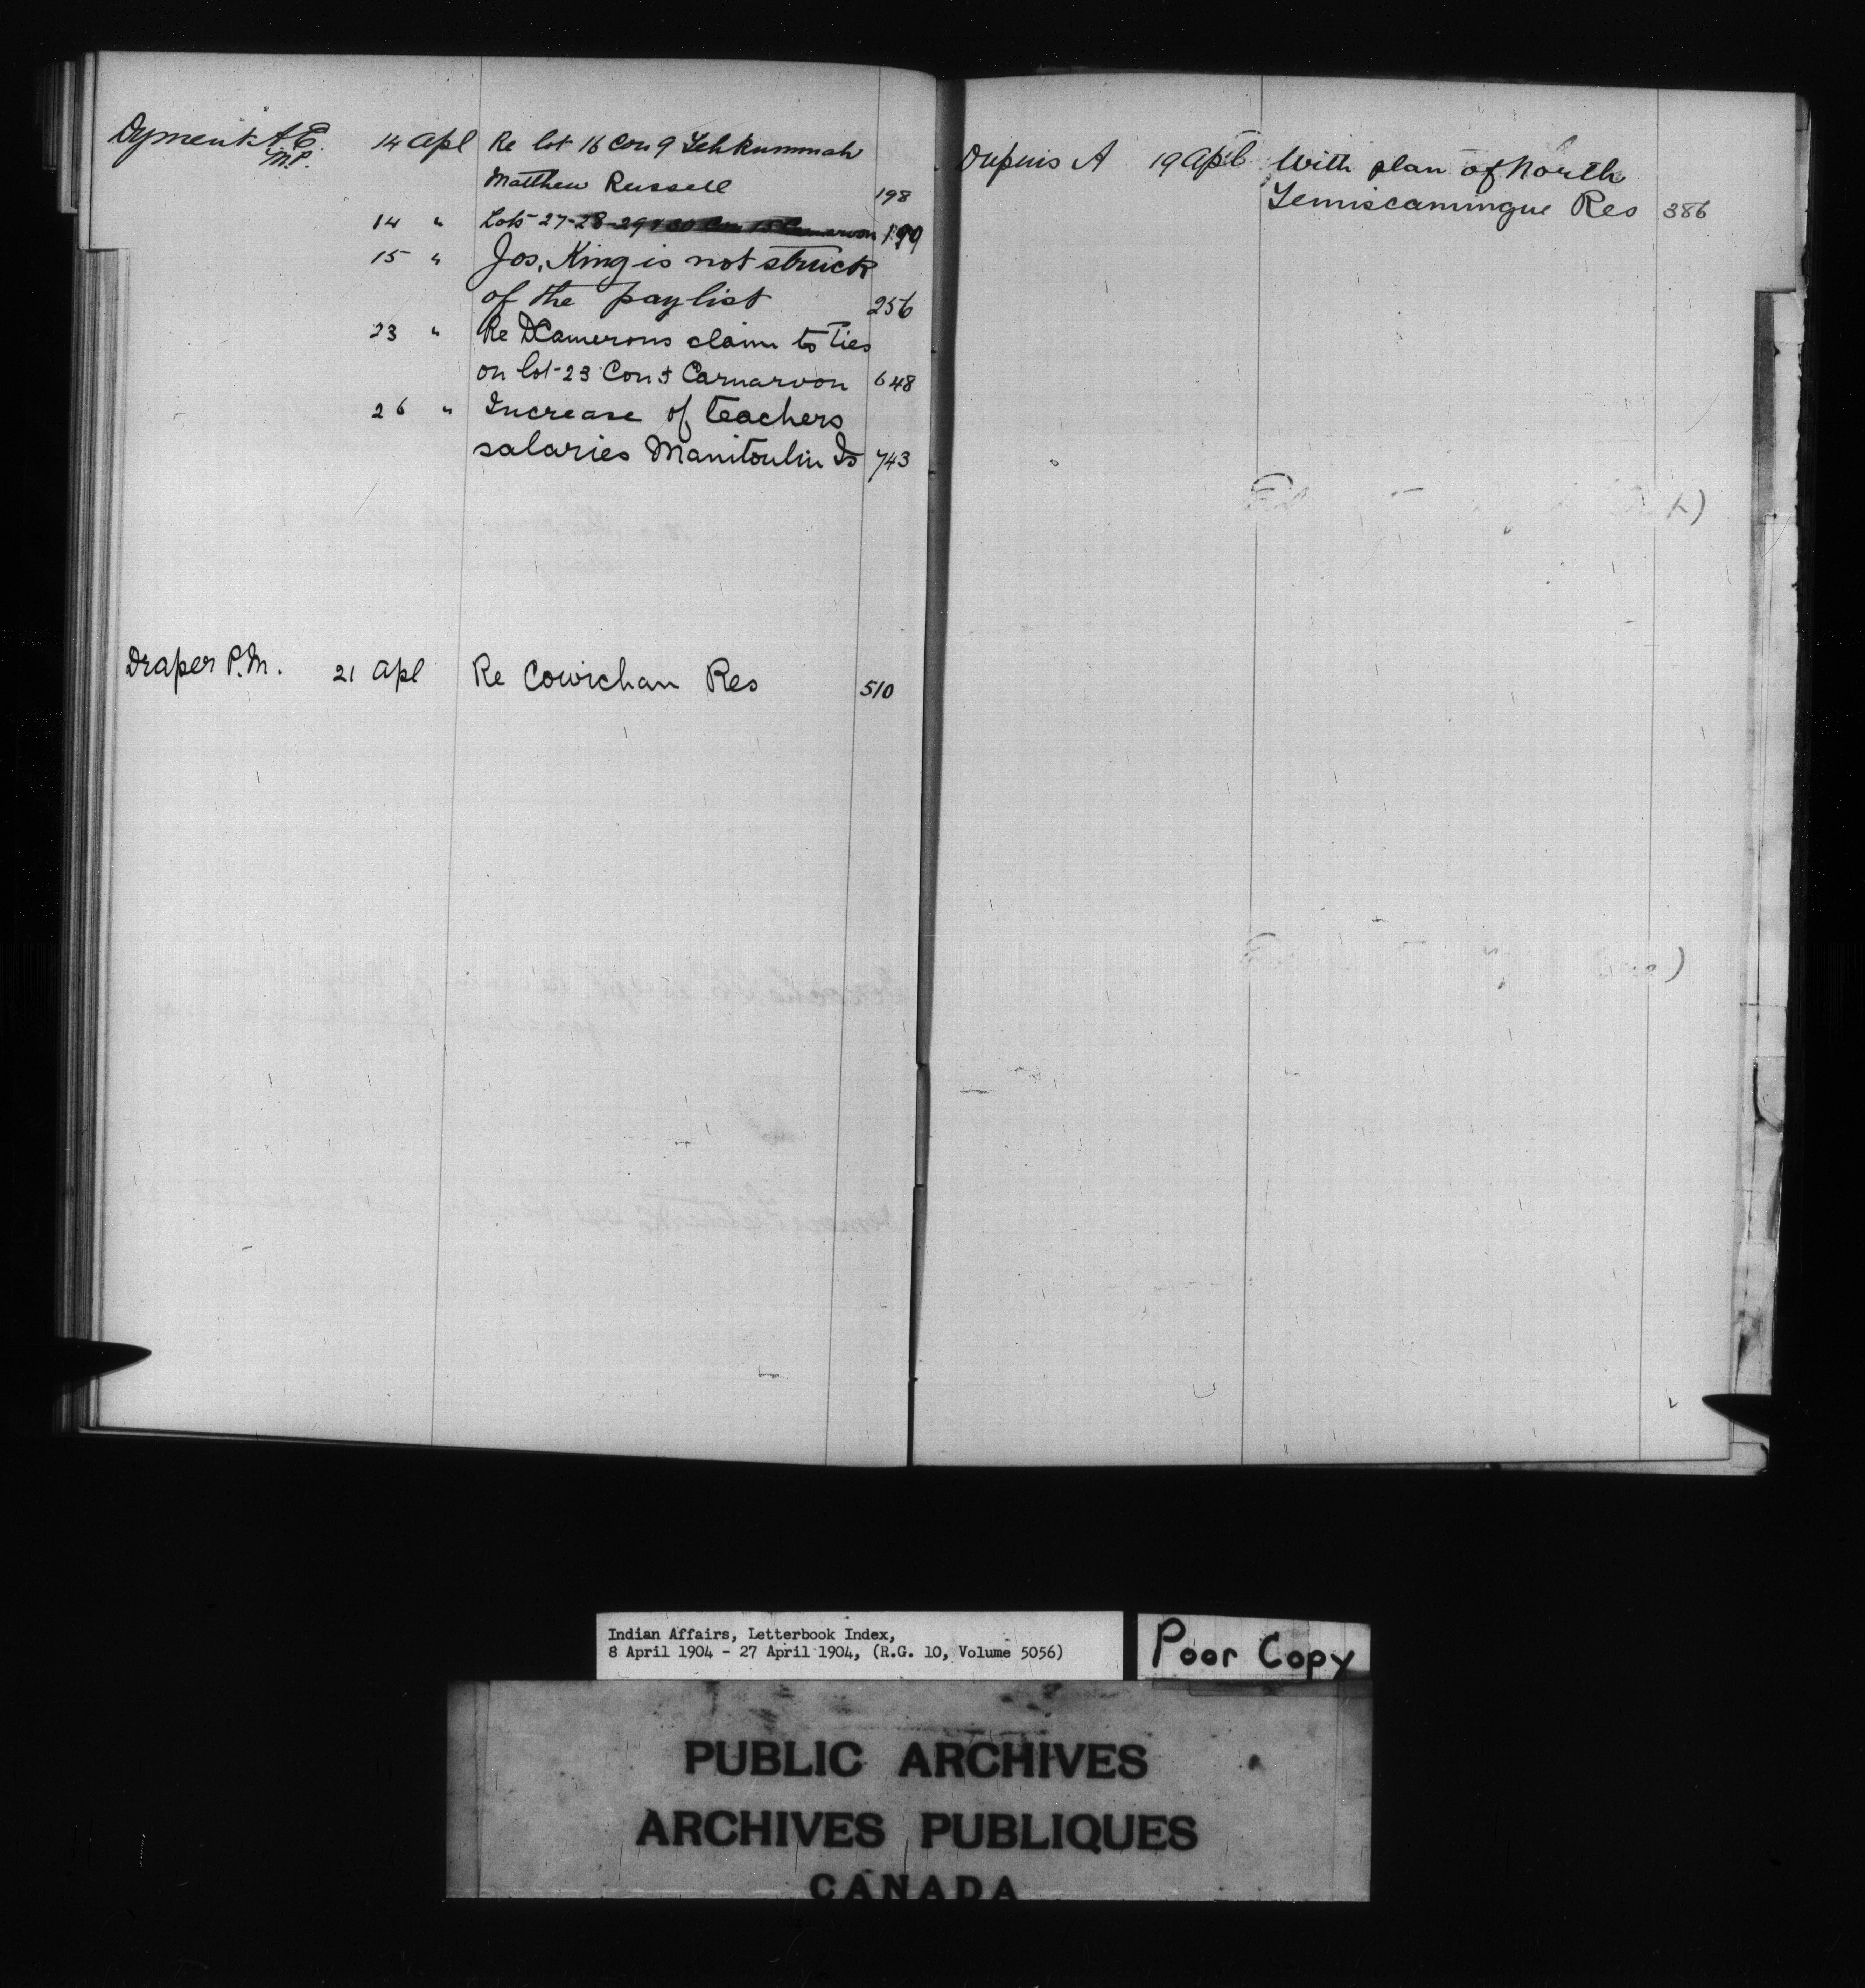 Dyment A.E. 14 Apl Re lot 16 Con 9 Tehkummah
M.P.
Matthew Russell 198
14 " Lots 27-28-29 & 30 Con Carnarvon 199
15 " Jos. King is not struck
of the paylist 256
23 " Re D Camerons claim to Ties
on lot 23 Con Carnarvon 648
26 " Increase of teachers
salaries Manitoulin Is 743
Draper P.M. 21 Apl Re Cowichan Res 510
Dupuis A 19 Apl With plan of North
Temiscamingue Res 386
Indian Affairs, Letterbook Index,
8 April 1904 - 27 April 1904, (R.G. 10, Volume 5056)
Poor Copy
PUBLIC ARCHIVES
ARCHIVES PUBLIQUES
CANADA